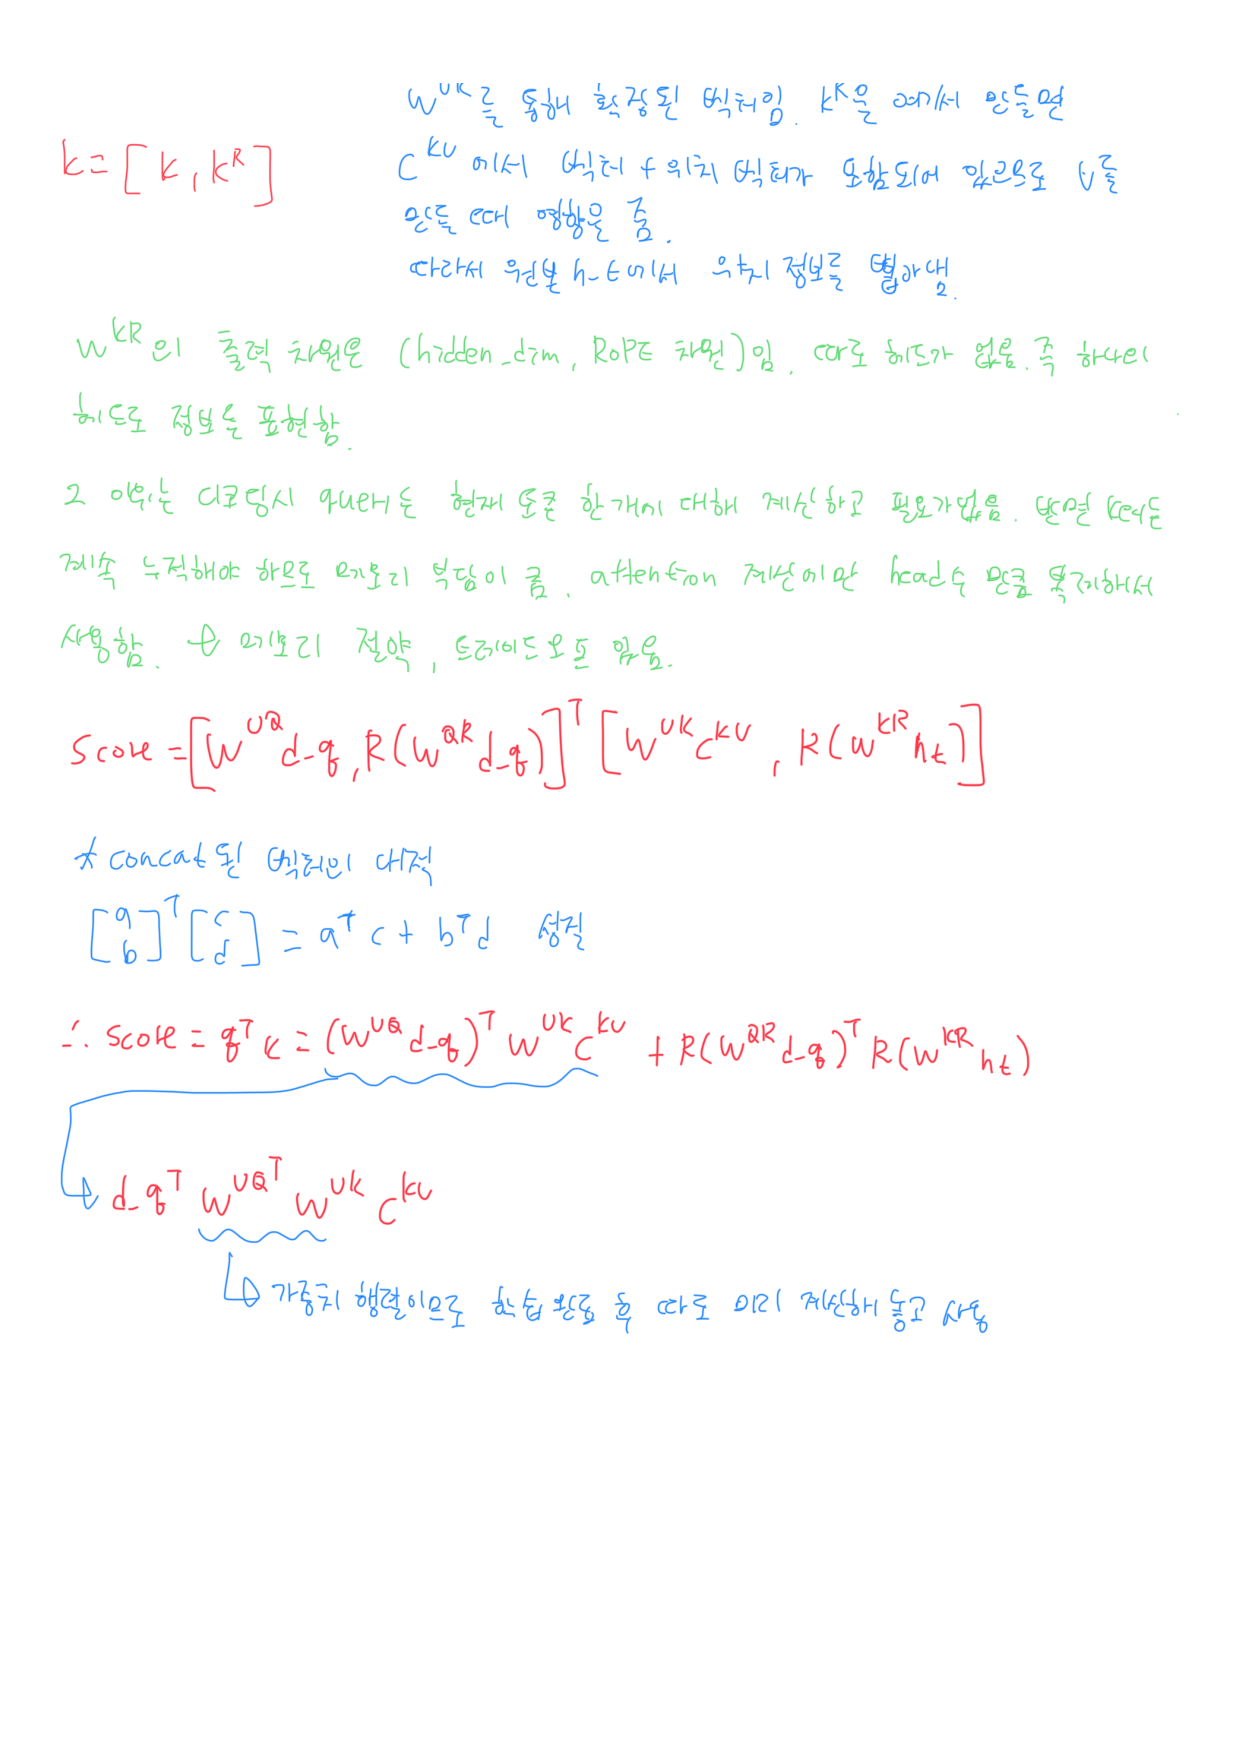 W^UK를 통해 확장된 벡터임. k^R을 여기서 만들면
k = [k, k^R]
C^KV에서 벡터 + 위치 벡터가 포함되어 있으므로 V를
만들 때 영향을 줌.
따라서 원본 h_t에서 위치 정보를 뽑아냄.
W^KR의 출력 차원은 (hidden_dim, RoPE 차원)임. 따로 헤드가 없음. 즉 하나의
헤드로 정보를 표현함.
그 이유는 디코딩시 query는 현재 토큰 한개에 대해 계산하고 필요가없음. 반면 key는
계속 누적해야 하므로 메모리 부담이 큼. attention 계산에만 head수 만큼 복제해서
사용함. → 메모리 절약, 트레이드오프 있음.
Score = [W^UQ d_q, R(W^QR d_q)]^T [W^UK C^KV, R(W^KR h_t)]
* concat된 벡터의 내적
[a b]^T [c d] = a^T c + b^T d 성질
∴ Score = q^T k = (W^UQ d_q)^T W^UK C^KV + R(W^QR d_q)^T R(W^KR h_t)
→ d_q^T W^UQ^T W^UK C^KV
→ 가중치 행렬이므로 학습 완료 후 따로 미리 계산해 놓고 사용